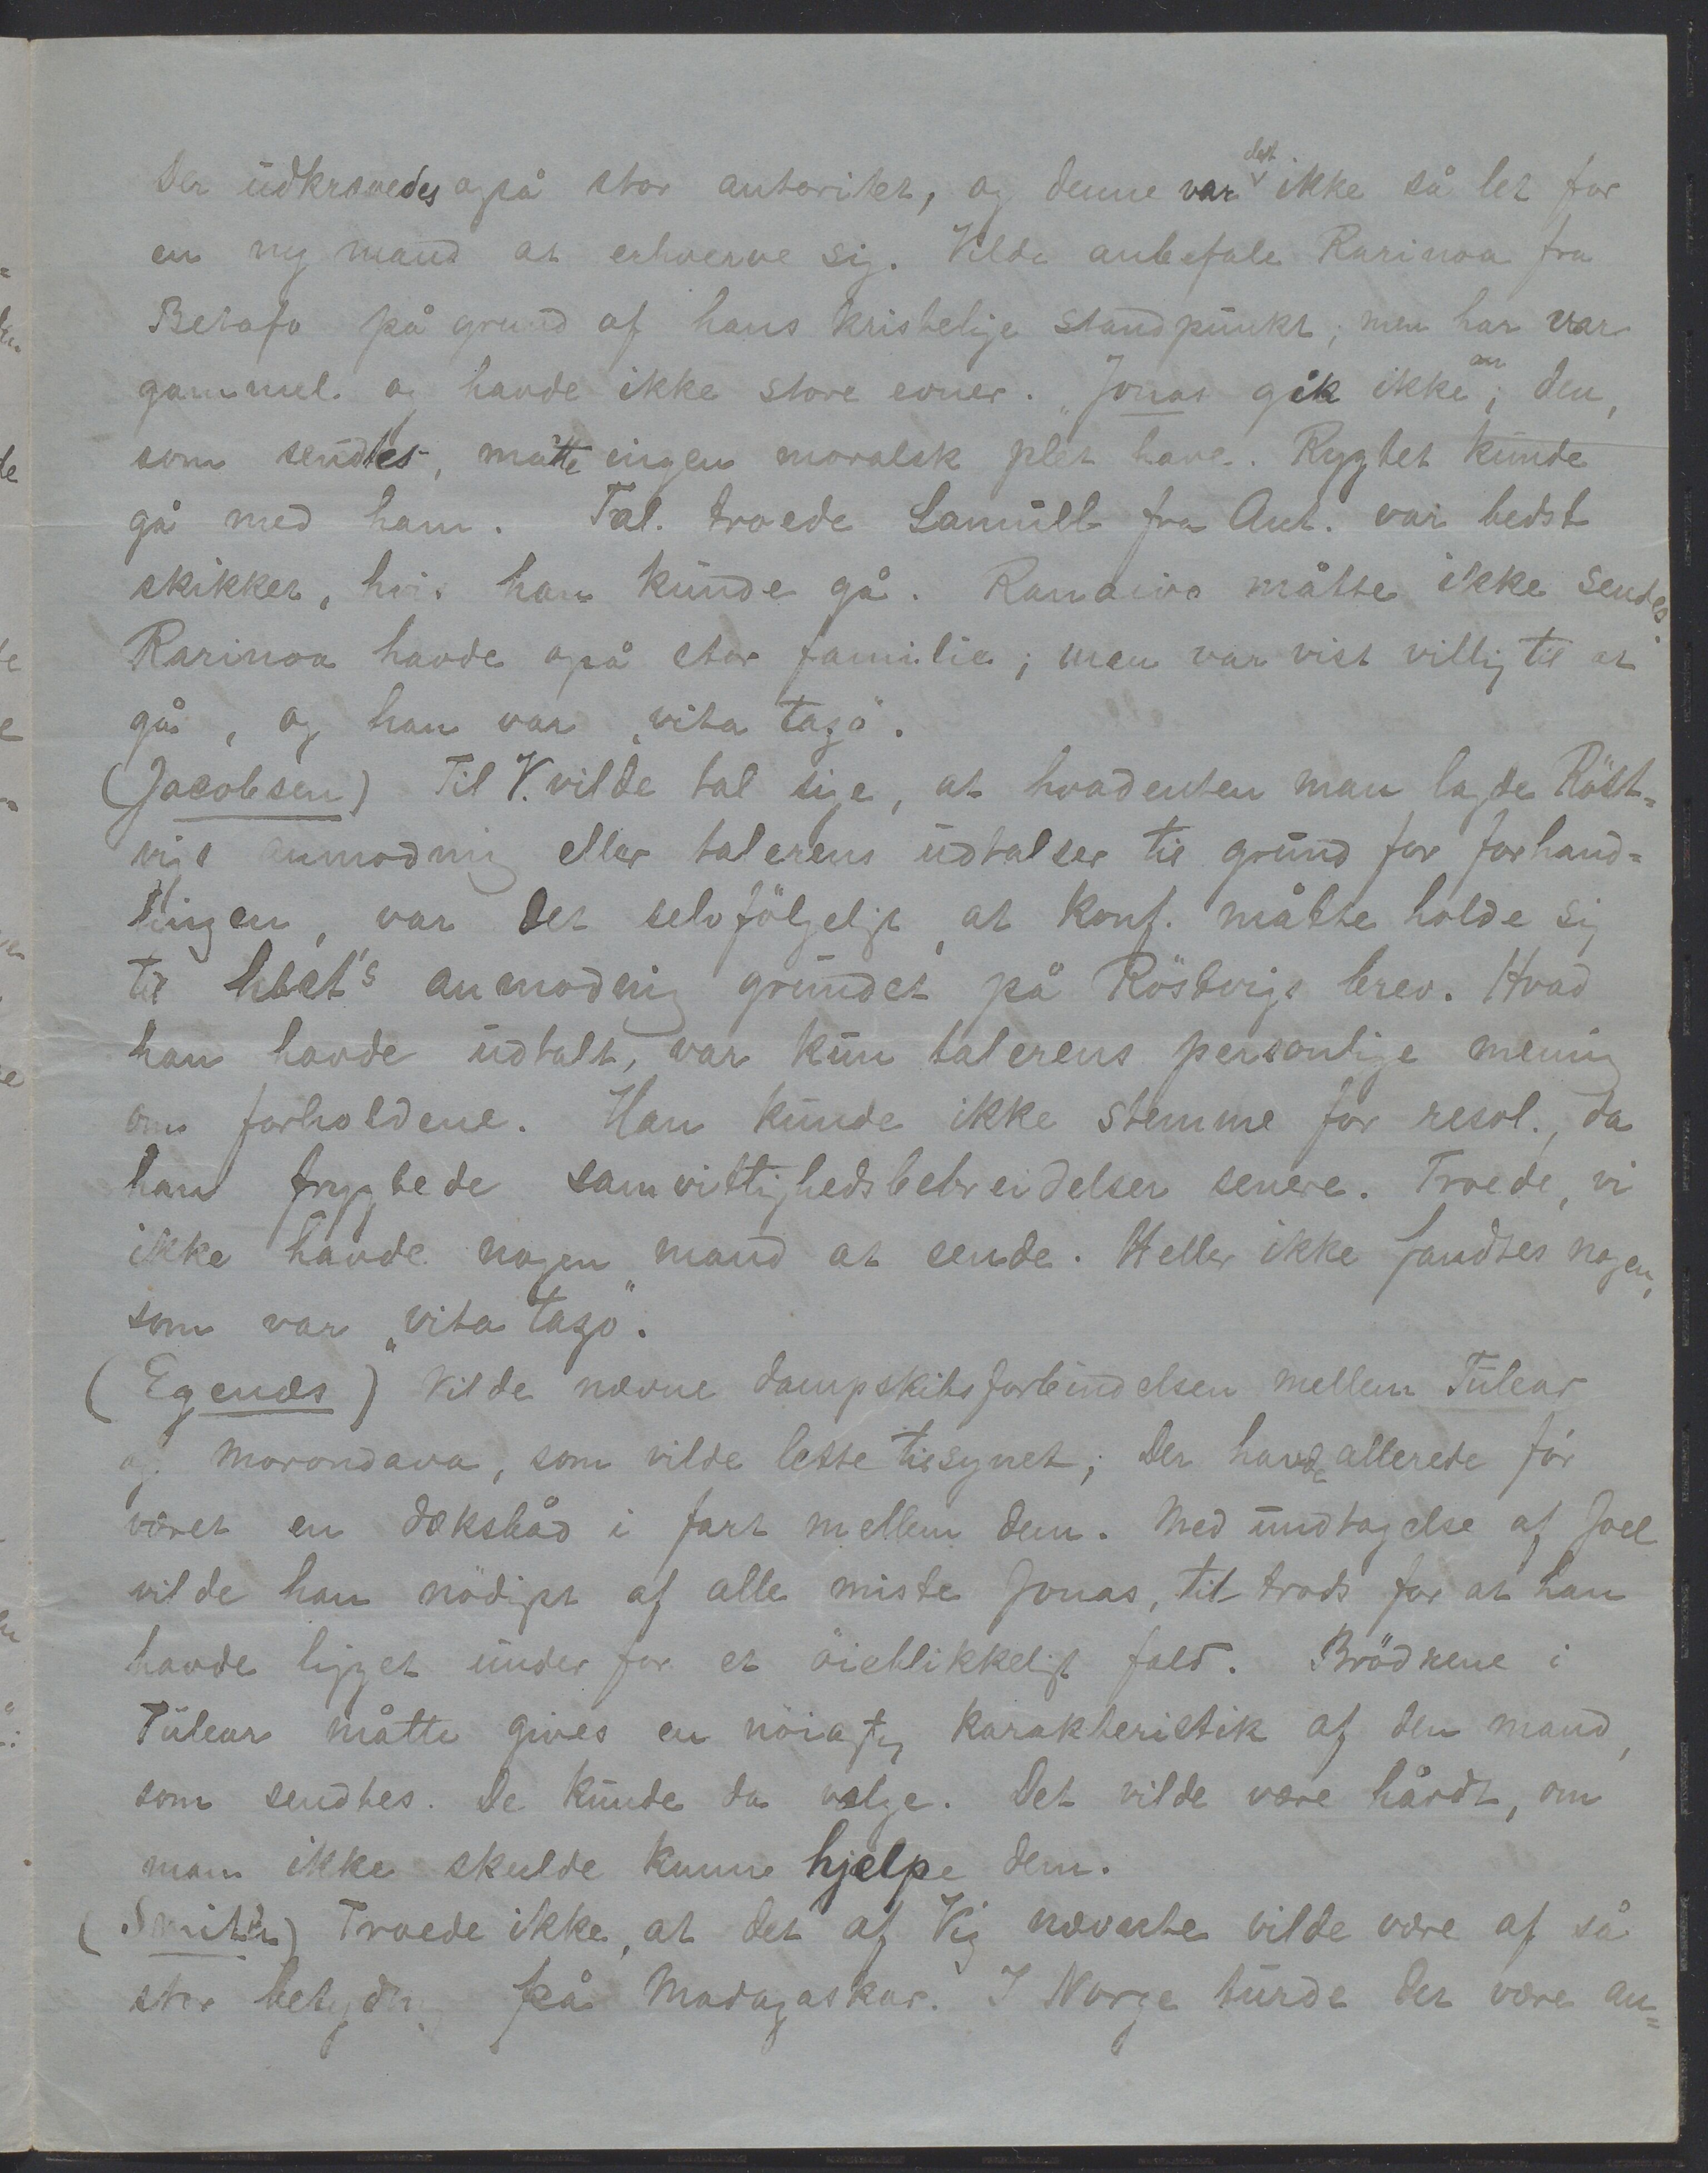 Der udkrævedes også stor autoritet, og denne var det ikke så let for
en ny mand at erhverve sig. Vilde anbefale Rarinoa fra
Betafo på grund af hans kristelige standpunkt; men han var
gammel og havde ikke store evner. Jonas gik ikke an; den,
som sendtes, måtte ingen moralsk plet have. Rygtet kunde
gå med ham. Tal. troede Samuel fra Ant. var bedst
skikket, hvis han kunde gå. Ranaivo måtte ikke sendes
Rarinoa havde også stor familie; men var vist villig til at
gå, og han var „vita tazo".
(Jacobsen) Til V. vilde tal sige, at hvadenten man lagde Röst=
vigs anmodning eller talerens udtalser til grund for forhand=
lingen, var det selvfölgeligt, at konf. måtte holde sig
til hbst's anmodning grundet på Röstvigs brev. Hvad
han havde udtalt, var kun talerens personlige mening
om forholdene. Han kunde ikke stemme for resol., da
han frygtede samvittighedsbebreidelser senere. Troede, vi
ikke havde nogen mand at sende. Heller ikke fandtes nogen,
som var „vita tazo".
(Egenæs) Vilde nævne dampskibsforbindelsen mellem Tulear
og Morondava, som vilde lette tilsynet; der havde allerede för
været en dæksbåd i fart mellem dem. Med undtagelse af Joel
vilde han nödigst af alle miste Jonas, til trods for at han
havde ligget under for et öieblikkeligt fald. Brödrene i
Tulear måtte gives en nöiagtig karakteristik af den mand,
som sendtes. De kunde da vælge. Det vilde være hårdt, om
man ikke skulde kunne hjælpe dem.
(Smith) Troede ikke, at det af Vig nævnte vilde være af så
stor betydning på Madagaskar. I Norge turde det være an=